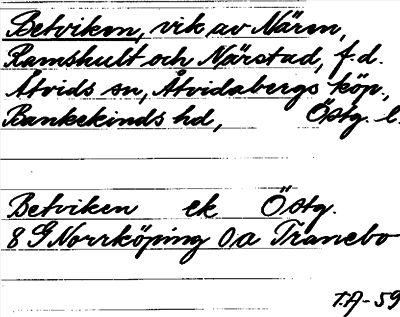 Betviken, vik av Nären,
Ramshult och Närstad, f.d.
Åtvids sn, Åtvidabergs köp.,
Bankekinds hd, Östg. l.
Betviken ek Östg.
8 G Norrköping 0a Tranebo
T.A-59